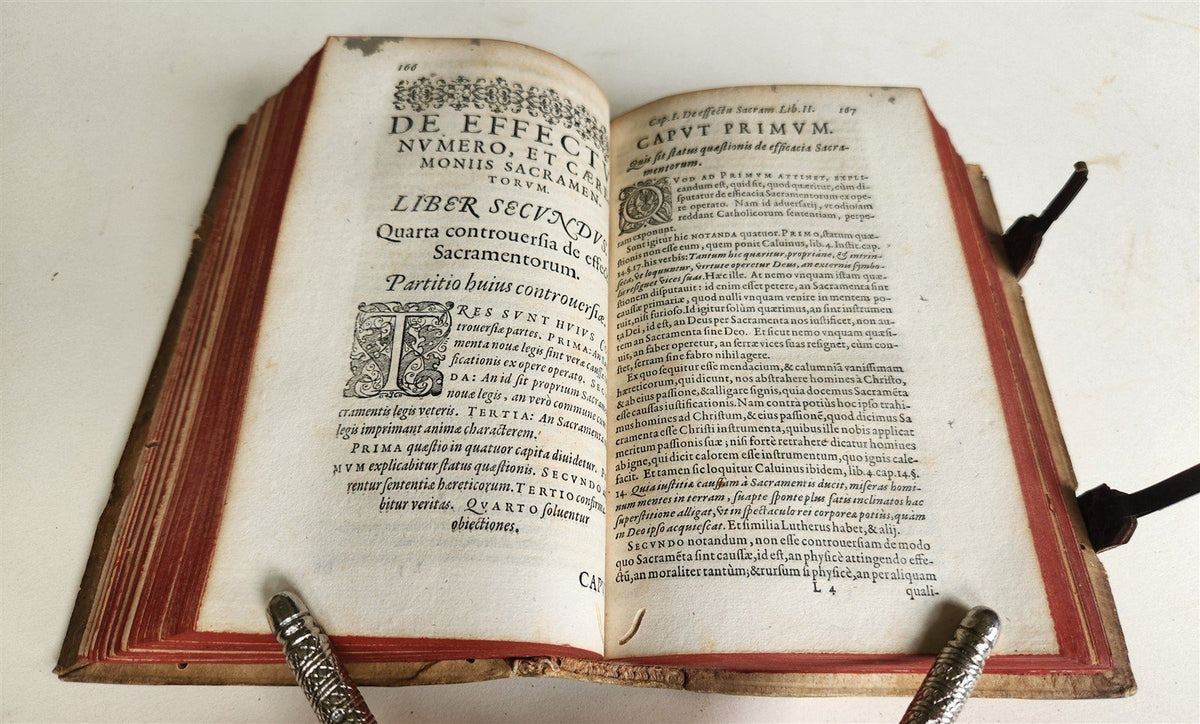 166
DE EFFECTV
NVMERO, ET CÆRE
MONIIS SACRAMEN-
TORVM.
LIBER SECVNDVS
Quarta controuersia de effec
Sacramentorum.
Partitio huius controuersiæ.
TRES SVNT HVIVS
trouersiæ partes. PRIMA: An
menta nouæ legis sint veræ causæ
ficationis ex opere operato. SEC
DA: An id sit proprium Sacram
nouæ legis, an verò commune cum
cramentis legis veteris. TERTIA: An Sacramenta
legis imprimant animæ characterem.
PRIMA quæstio in quatuor capita diuidetur.
MVM explicabitur status quæstionis. SECVNDO
rentur sententiæ hæreticorum. TERTIO confirma
bitur veritas. QVARTO soluentur
obiectiones.
CAPV
Cap. I. De effectu Sacram. Lib. II. 167
CAPVT PRIMVM.
Quis sit status quæstionis de efficacia Sacra-
mentorum.
QVOD AD PRIMVM ATTINET, EXPLI-
candum est, quid sit, quod quæritur, cùm di-
sputatur de efficacia Sacramentorum ex ope-
re operato. Nam id aduersarij, vt odiosam
reddant Catholicorum sententiam, perpe-
ram exponunt.
Sunt igitur hic NOTANDA quatuor. PRIMO, statum quæ-
stionis non esse eum, quem ponit Caluinus, lib. 4. Instit. cap.
14. §. 17. his verbis: Tantum hic quæritur, propriáne, & intrin-
seca, vt loquuntur, virtute operetur Deus, an externis symbo-
lis resignet vices suas. Hæc ille. At nemo vnquam istam quæ-
stionem disputauit: id enim esset petere, an Sacramenta sint
caussæ primariæ, quod nulli vnquam venire in mentem po-
tuit, nisi furioso. Id igitur solùm quærimus, an sint instrumen
ta Dei, id est, an Deus per Sacramenta nos iustificet, non au-
tem an Sacramenta sine Deo. Et sicut nemo vnquam quæsi-
uit, an faber operetur, an serræ vices suas resignet, cùm con-
stet, serram sine fabro nihil agere.
Ex quo sequitur esse mendacium, & calumniã vanissimam
hæreticorum, qui dicunt, nos abstrahere homines à Christo,
& ab eius passione, & alligare signis, quia docemus Sacramẽta
esse caussas iustificationis. Nam contrà potius hoc ipso trahi-
mus homines ad Christum, & eius passionẽ, quod dicimus Sa
cramenta esse Christi instrumenta, quibus ille nobis applicat
meritum passionis suæ; nisi fortè retrahere dicatur homines
ab igne, qui dicit calorem esse instrumentum, quo ignis cale-
facit. Et tamen sic loquitur Caluinus ibidem, lib. 4. cap. 14. §.
14. Quia iustitiæ caussam à Sacramenis ducit, miseras homi-
num mentes in terram, suapte sponte plus satis inclinatos hac
superstitione alligat, vt in spectaculo rei corporeæ potius, quam
in Deo ipso acquiescat. Et similia Lutherus habet, & alij.
SECVNDO notandum, non esse controuersiam de modo
quo Sacramẽta sint caussæ, id est, an physicè attingendo effe-
ctũ, an moraliter tantùm; & rursum si physicè, an per aliquam
L 4 quali-